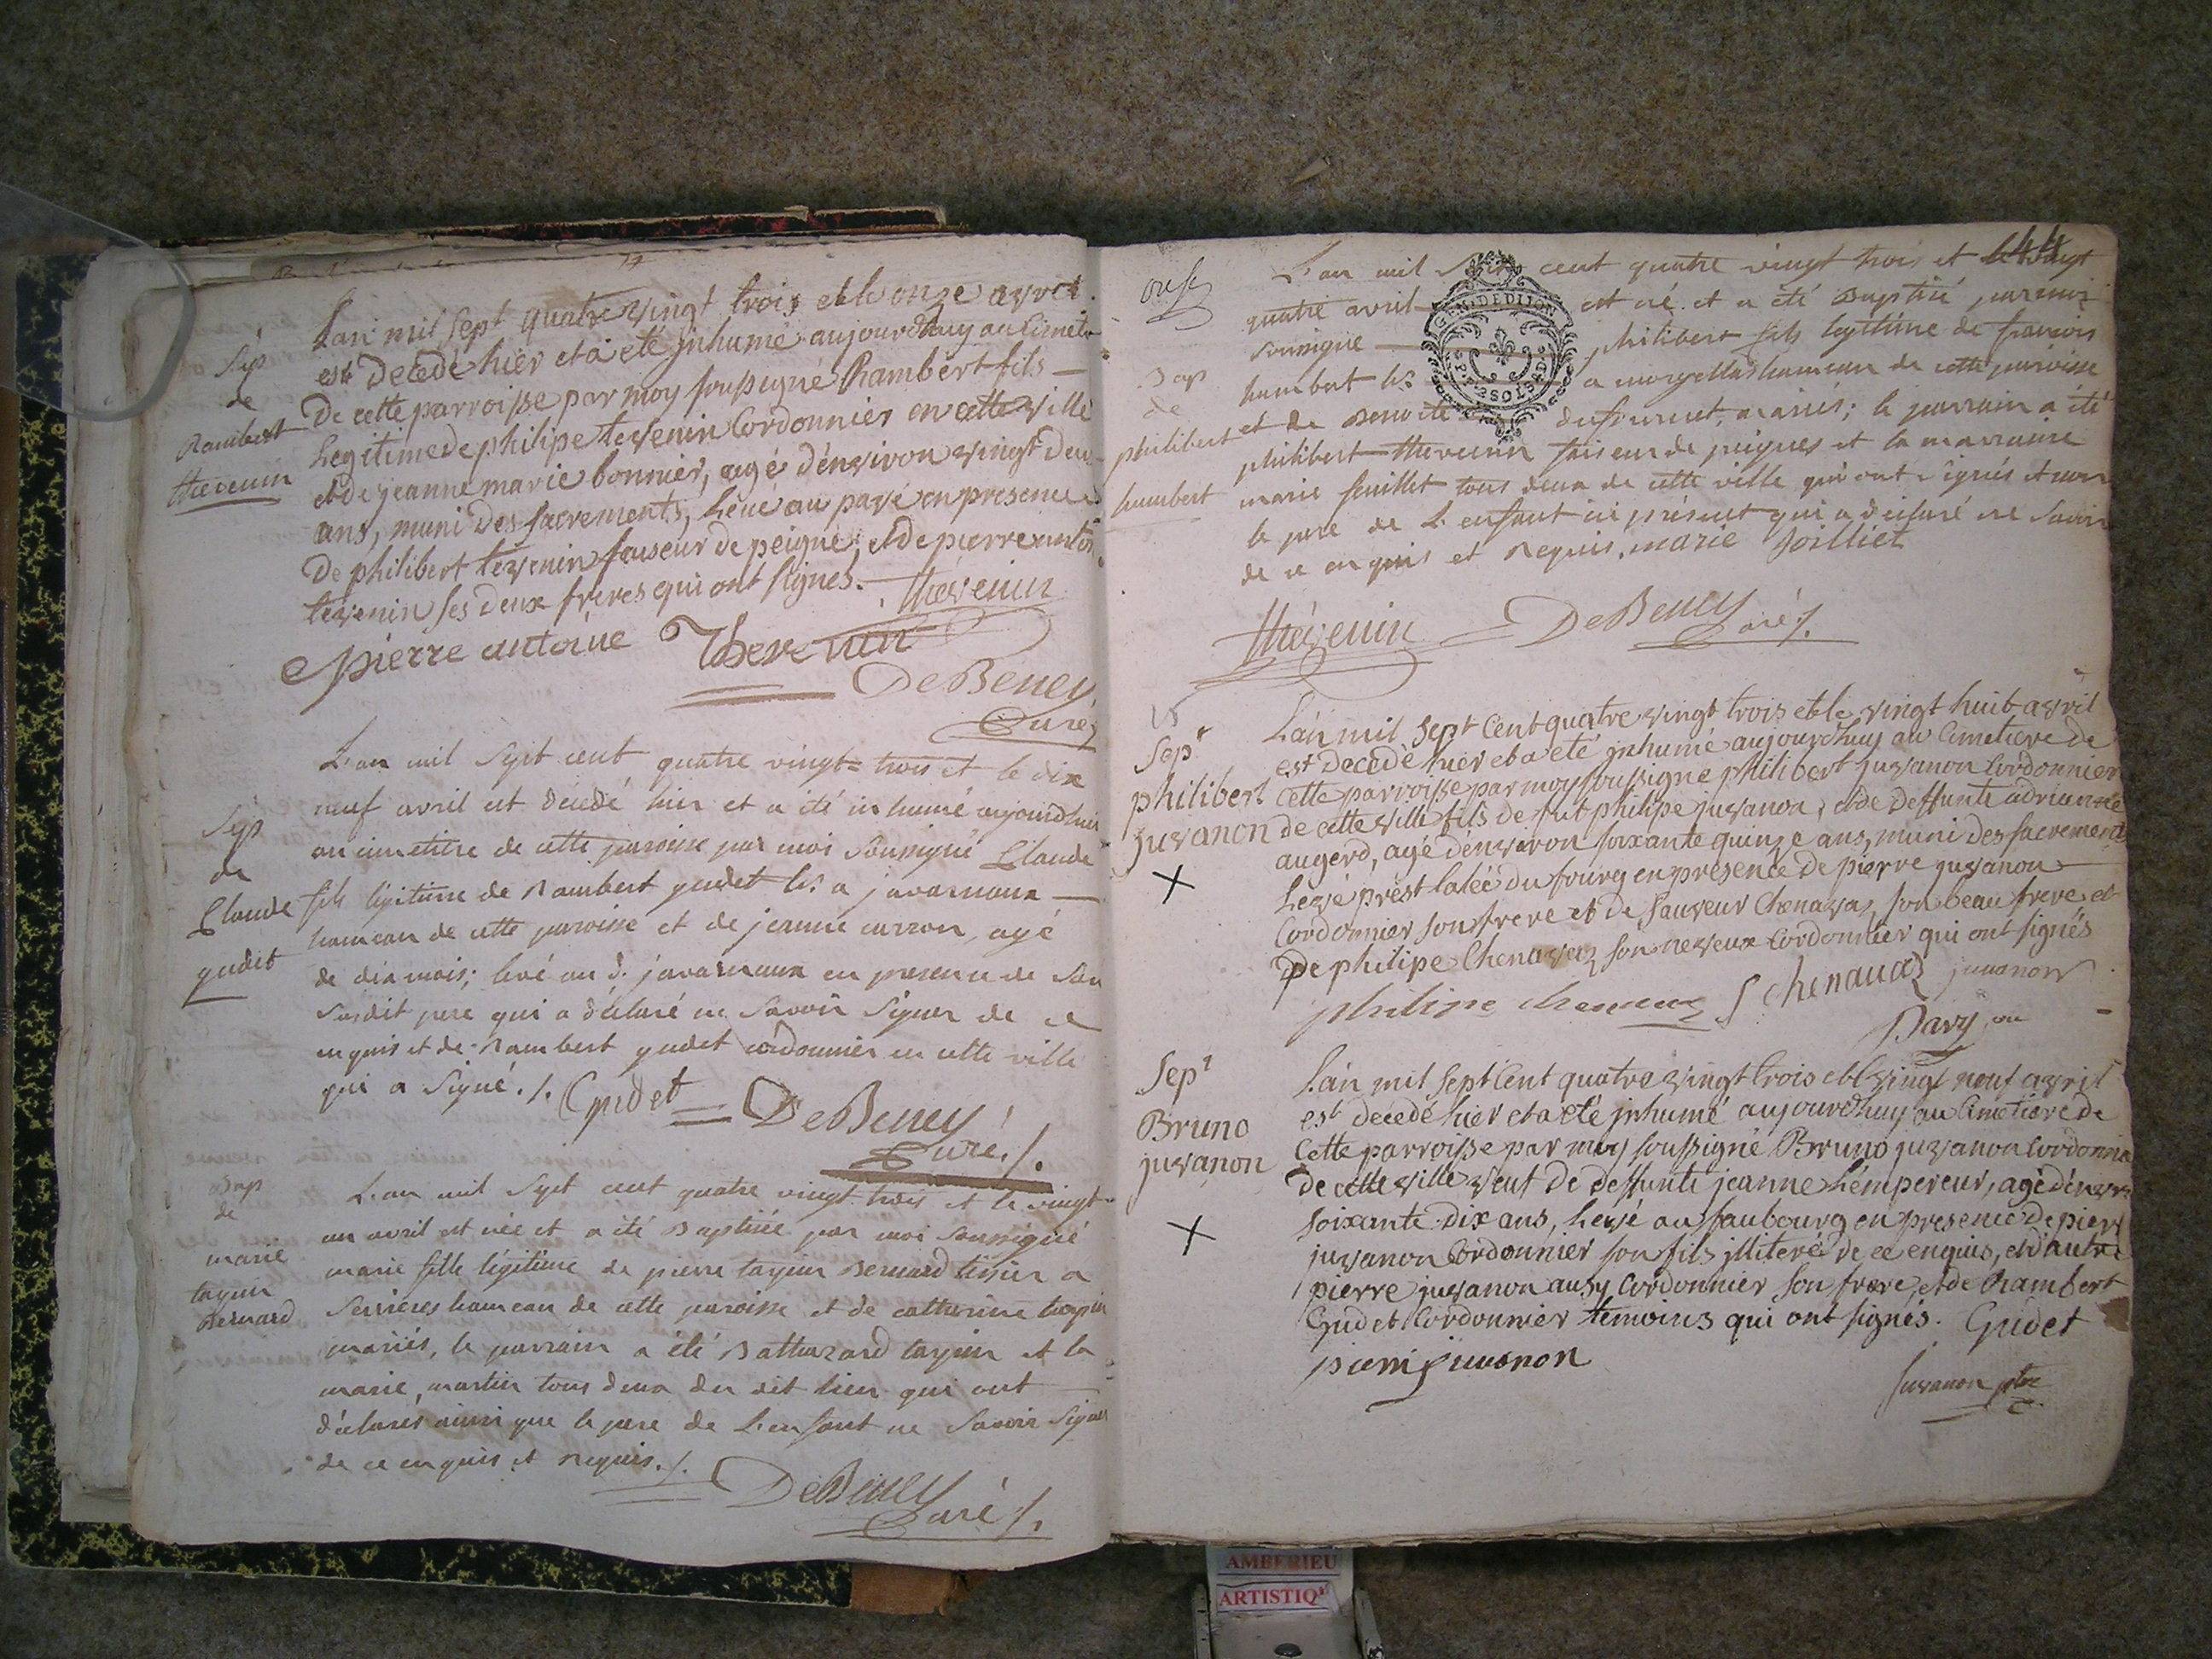 Sep
de
Rambert
thevenin
Lan mil sept quatre vingt trois et le onze avril
est decedé hier et a eté jnhumé aujourdhuy au Cimet
De cette parroisse par moy soussigné Rambert fils
Legitime de philipe tevenin Cordonnier en cette ville
et de jeanne marie bonnier, agé d'environ vingt deux
ans, muni des sacrements, Levé au pavé en presence
De philibert tevenin faiseur de peigne, et de pierre antoi
tevenin ses deux freres qui ont signes. thevenin
pierre antoine Thevenin
DeBeney
Curé
Sep
de
Claude
gudet
L'an mil sept cent quatre vingt=trois et le dix
neuf avril est décédé hier et a été inhumé aujourdhui
au cimetière de cette paroisse par moi soussigné Claude
fils légitime de Rambert gudet lr. a javarnaux
hameau de cette paroisse et de jeanne carron, agé
de dix mois; levé au d. javarnaux en presence de son
susdit pere qui a déclaré ne savoir signer de ce
enquis et de Rambert gudet cordonnier en cette ville
qui a signé ./. Gudet = DeBeney
Curé ./.
Bap
de
marie
tayin
Bernard
L'an mil sept cent quatre vingt trois et le vingt
un avril est née et a été Baptisée par moi soussigné
marie fille légitime de pierre Bernard tissier a
Serrieres hameau de cette paroisse et de catherine
mariés, le parrain a été Balthazard et la
marie, martin tous deux du dit lieu qui ont
déclarés ainsi que le pere de L'enfant ne savoir signer
de ce enquis et requis ./. DeBeney
Curé ./.
44
Bap
de
philibert
humbert
L'an mil sept cent quatre vingt trois et le vingt
quatre avril est né et a été Baptisé par moi
soussigné philibert fils legitime de francois
humbert lr. a hameau de cette paroisse
et de Benoite dufournet, mariés; le parrain a été
philibert thevenin faiseur de peignes et la marraine
marie tous deux de cette ville qui ont signés et non
le pere de L'enfant ici présent qui a déclaré ne savoir
de ce enquis et requis. marie Joilliet
GEN. DE DIJON
thévenin DeBeney
Curé ./.
Sept
philibert
juvanon
X
Lán mil sept Cent quatre vingt trois et le vingt huit avril
est decedé hier et a eté jnhumé aujourdhuy au Cimetiere de
cette parroisse par moy soussigné philibert juvanon Cordonnier
de cette ville fils de fut philipe juvanon, et de deffunte adrianne
augerd, agé d'environ soixante quinze ans, muni des sacrements
Levé prest lalée du fourg en presence de pierre juvanon
Cordonnier son frere et de Sauveur Chenavaz, son beau frere et
De philipe Chenavaz son neveux Cordonnier qui ont signés
philipe chenavaz S chenauaz juuanon
Sept
Bruno
juvanon
X
Lán mil sept Cent quatre vingt trois et l vingt neuf avril
est decedé hier et a eté jnhumé aujourdhuy au Cimetiere de
Cette parroisse par moy soussigné Bruno juvanon Cordonnie
de cette ville veuf De deffunte jeanne Lémpereur, agé dénviro
soixante dix ans, Levé au faubourg en presence de pierr
juvanon Cordonnier son fils jlliteré de ce enquis, et d'autre
pierre juvanon ausy Cordonnier son frere, et de Rambert
Gudet Cordonnier temoins qui ont signés. Gudet
pierre juuanon
juvanon ptre
AMBERIEU
ARTISTIQ